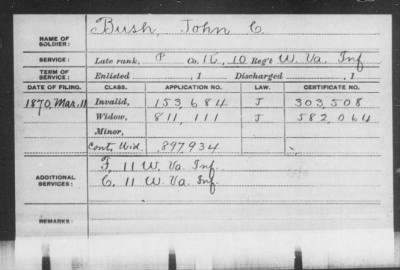 NAME OF SOLDIER: Bush, John C.
SERVICE: Late rank, P Co. K, 10 Reg't W. Va. Inf
TERM OF SERVICE: Enlisted , 1 Discharged , 1
DATE OF FILING. CLASS. APPLICATION NO. LAW. CERTIFICATE NO.
1870, Mar. 11 Invalid, 153,684 J 303,508
Widow, 811,111 J 582,064
Minor,
Cont. Wid. 897,934
ADDITIONAL SERVICES: F, 11 W. Va. Inf.
C, 11 W. Va. Inf.
REMARKS: